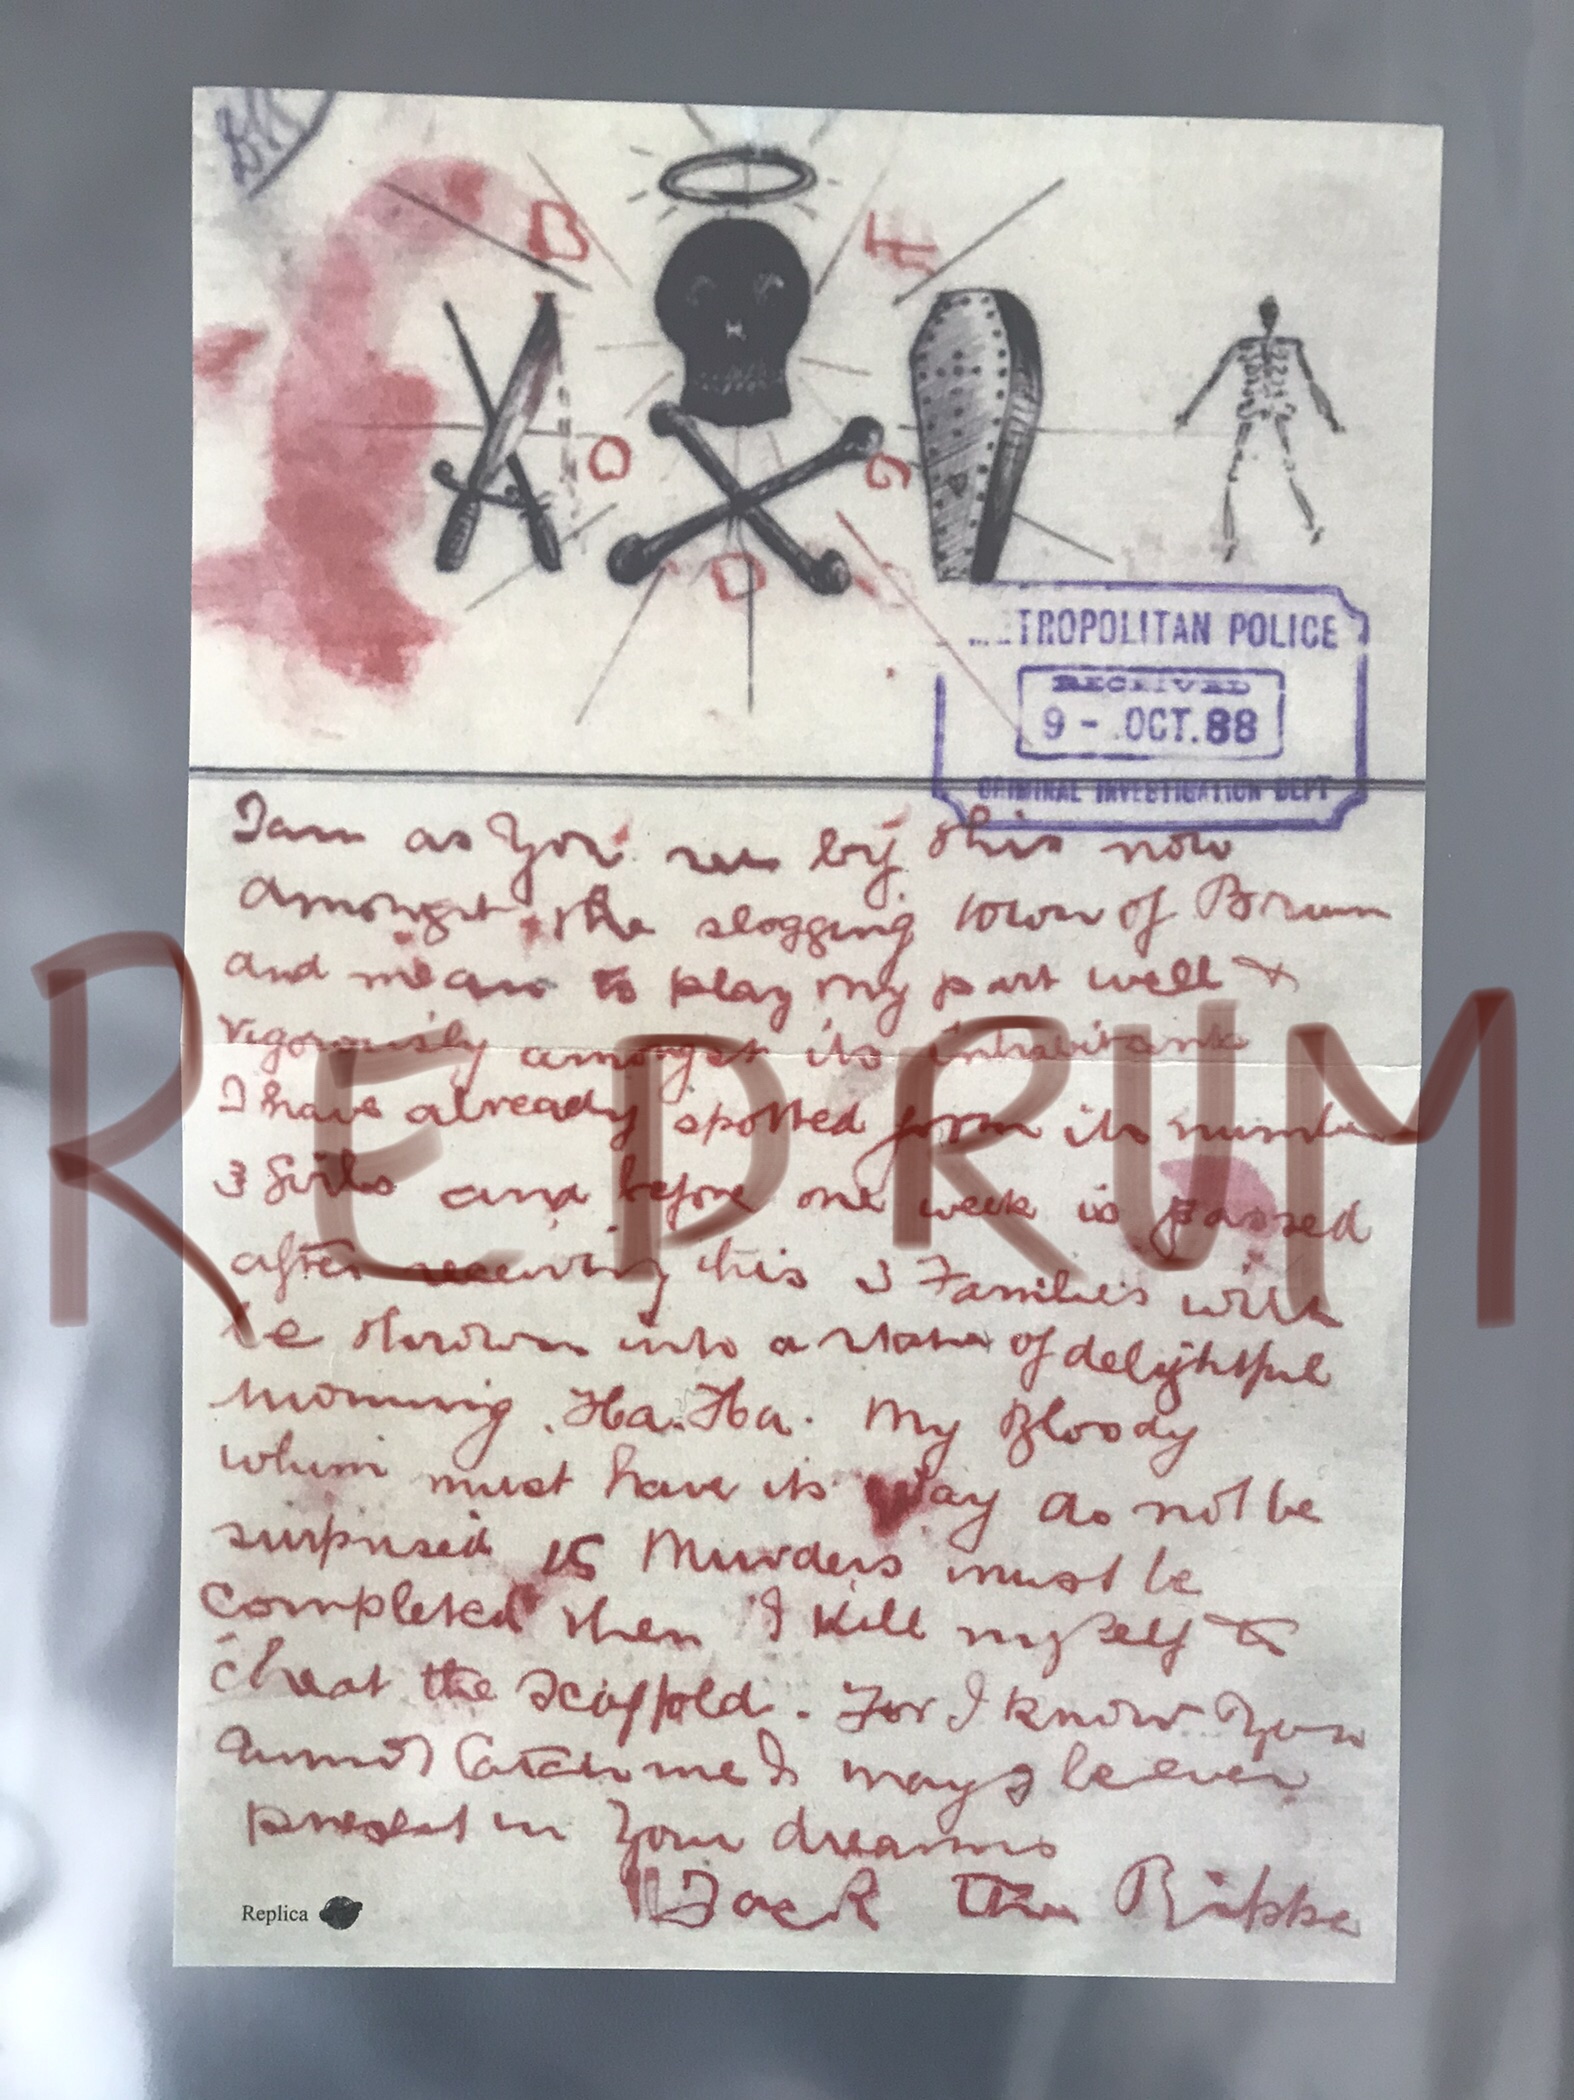 BK
B E
O G
D
TROPOLITAN POLICE
RECEIVED
9 - OCT. 88
CRIMINAL INVESTIGATION DEPT
I am as you see by this now
amongst the slogging town of Brum
and mean to play my part well &
vigorously amongst its inhabitants
REDRUM
I have already spotted from its number
3 Girls and before one week is passed
after receiving this 3 Families will
be thrown into a state of delightful
mourning. Ha. Ha. My Bloody
whim must have its way do not be
surprised 15 Murders must be
completed then I kill myself to
cheat the scaffold. For I know you
cannot catch me & may I be ever
present in your dreams
Jack the Rippe
Replica